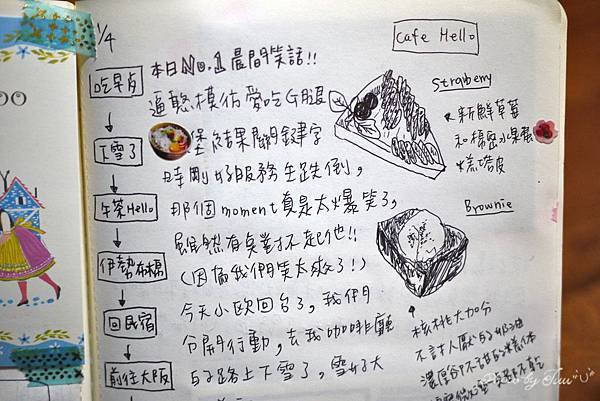 1/4
吃早占
下雪了
午茶Hello
伊勢布橋
回民宿
前往大阪
本日No.1晨間笑話!!
逼憨模仿愛吃G腿
堡 結果關鍵字
時剛好服務生跌倒,
那個moment真是太爆笑了,
雖然有臭對不起他!!
(因為我們笑太燦了!)
今天小歐回台了,我們
分開行動,去找咖啡廳
的路上下雪了,雪好大
Cafe Hello
Strawberry
新鮮草莓
和綿密水果蛋
糕塔皮
Brownie
核桃大加分
不討人厭的奶油
Photo by